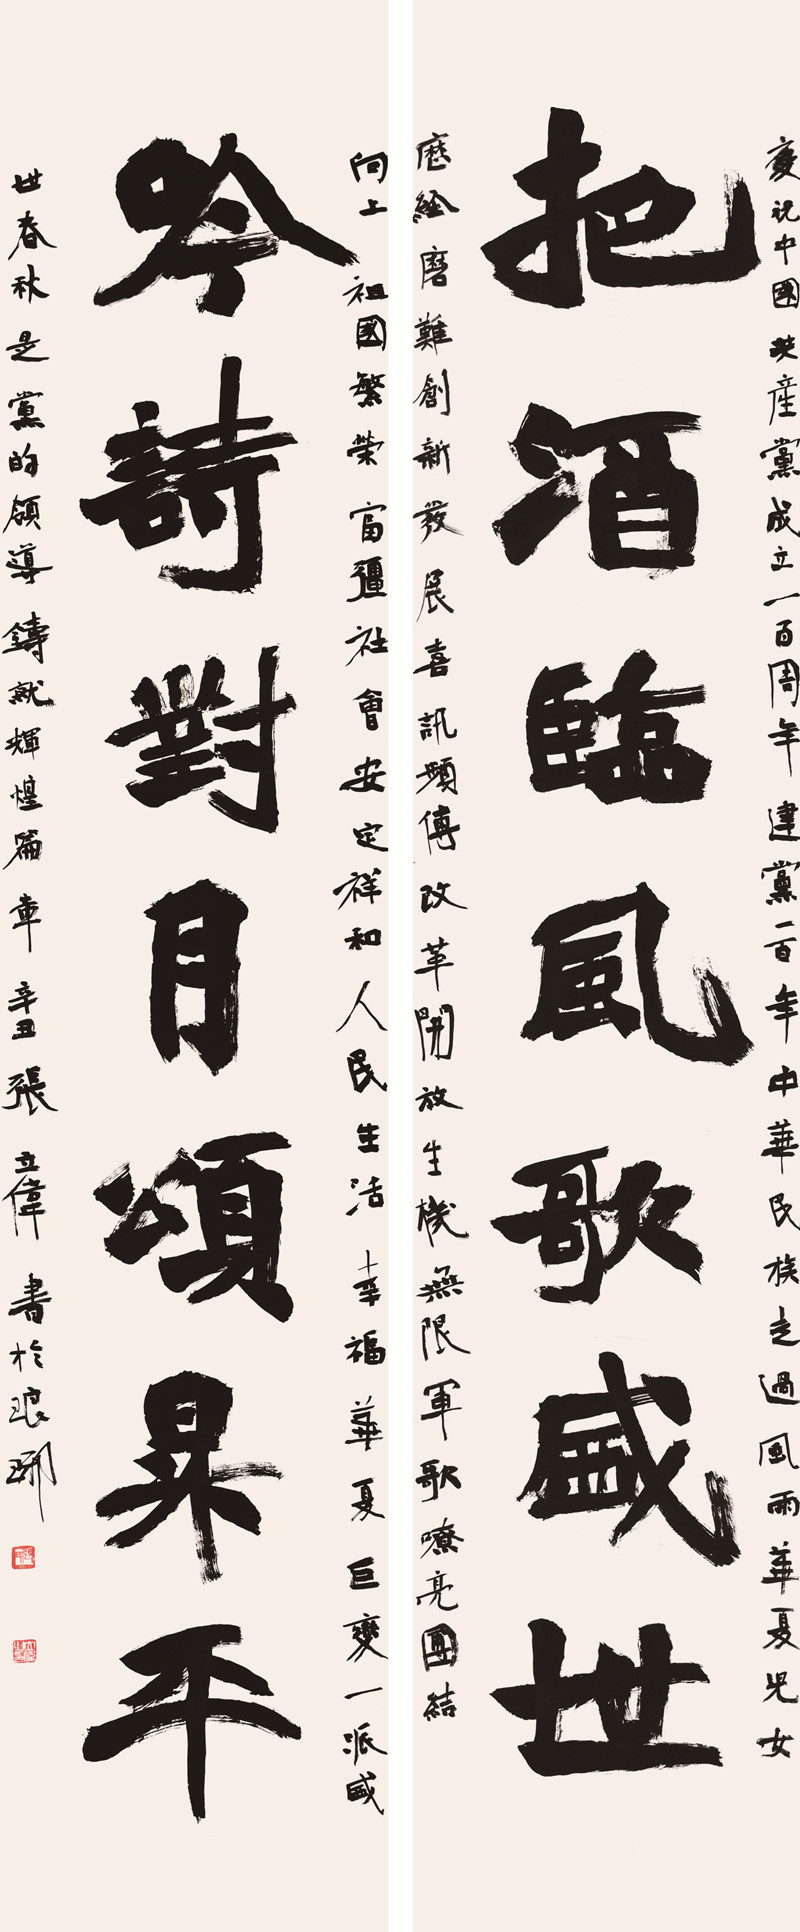 慶祝中國共產黨成立一百周年建黨一百年中華民族走過風雨華夏兒女
把酒臨風歌盛世
歷經磨難創新發展喜訊頻傳改革開放生機無限軍歌嘹亮團結
向上祖國繁榮富彊社會安定祥和人民生活幸福華夏巨變一派盛
吟詩對月頌昇平
世春秋是黨的領導鑄就輝煌篇章辛丑張立偉書於琅琊